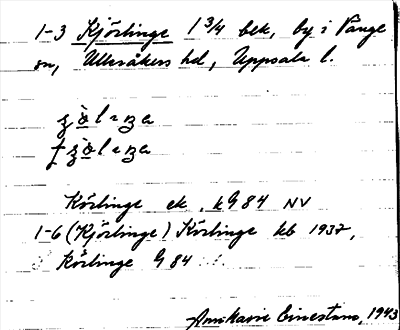 1-3 Kjörlinge 1 3/4 bek, by i Vänge
sn, Ulleråkers hd, Uppsala l.
Körlinge ek. kG 84 NV
1-6 (Kjörlinge) Körlinge kb 1937,
Körlinge G 84
Ann-Marie 1943